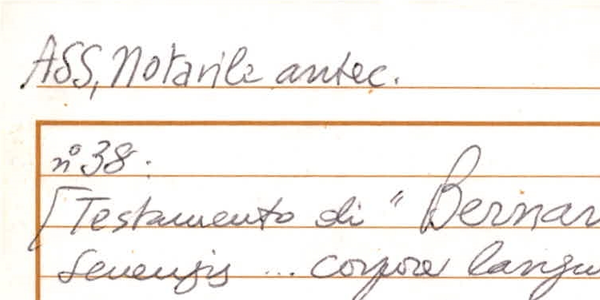 ASS, Notarile antec.
n° 38.
[Testamento di "Bernar
Senensis ... corpore langu